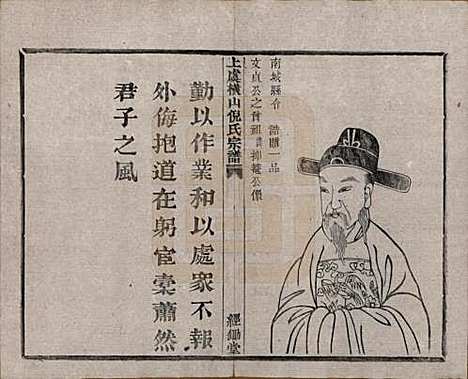 南城縣令 誥贈一品
文貞公之曾祖 公像
上虞橫山倪氏宗譜
經鋤堂
勤以作業和以處眾不報
外侮抱道在躬宦橐蕭然
君子之風